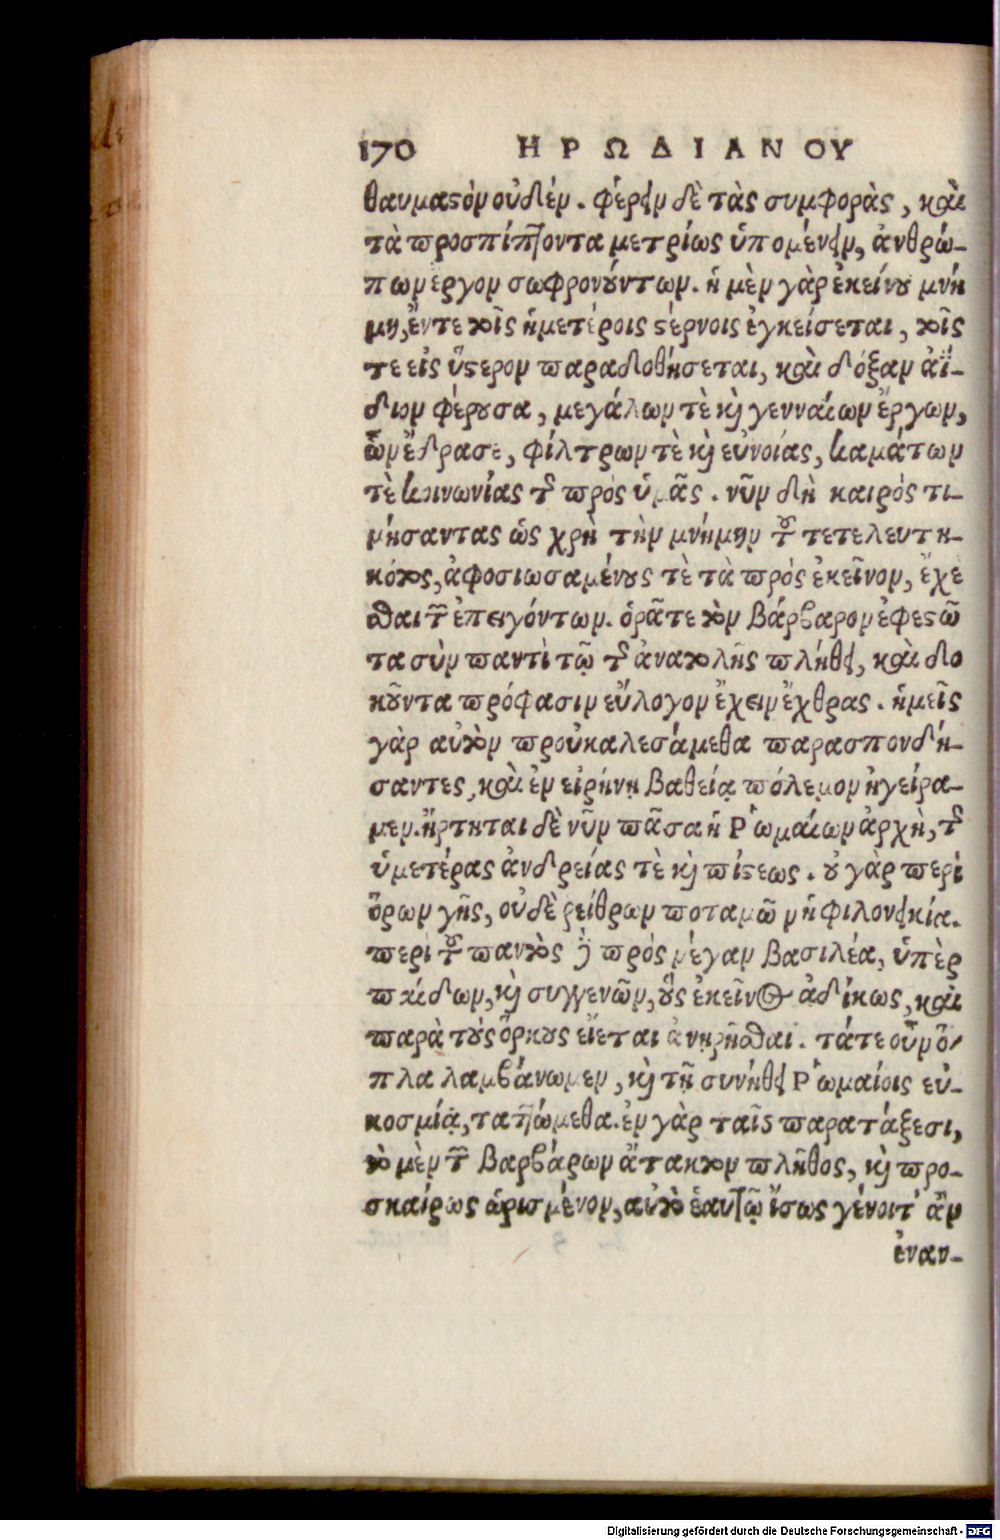 170 ΗΡΩΔΙΑΝΟΥ
θαυμαϛὸν οὐδέν. φέρειν δὲ τὰς συμφορὰς, καὶ
τὰ προσπίπτοντα μετρίως ὑπομένειν, ἀνθρώ-
πων ἔργον σωφρονούντων. ἡ μὲν γὰρ ἐκείνου μνή
μη, ἔν τε τοῖς ἡμετέροις ϛέρνοις ἐγκείσεται, τοῖς
τε εἰς ὕϛερον παραδοθήσεται, καὶ δόξαν ἀΐ-
διον φέρουσα, μεγάλων τὲ καὶ γενναίων ἔργων,
ὧν ἔδρασε, φίλτρων τὲ καὶ εὐνοίας, καμάτων
τὲ κοινωνίας τῆς πρὸς ὑμᾶς. νῦν δὴ καιρὸς τι-
μήσαντας ὡς χρὴ τὴν μνήμην τοῦ τετελευτη-
κότος, ἀφοσιωσαμένους τὲ τὰ πρὸς ἐκεῖνον, ἔχε
σθαι τῶν ἐπειγόντων. ὁρᾶτε τὸν βάρβαρον ἐφεϛῶ
τα σὺν παντὶ τῷ τῆς ἀνατολῆς πλήθει, καὶ δο
κοῦντα πρόφασιν εὔλογον ἔχειν ἔχθρας. ἡμεῖς
γὰρ αὐτὸν προὐκαλεσάμεθα παρασπονδή-
σαντες, καὶ ἐν εἰρήνῃ βαθείᾳ πόλεμον ἠγείρα-
μεν. ἤρτηται δὲ νῦν πᾶσα ἡ Ῥωμαίων ἀρχὴ, τῆς
ὑμετέρας ἀνδρείας τὲ καὶ πίϛεως. οὐ γὰρ περὶ
ὅρων γῆς, οὐδὲ ῥείθρων ποταμῶν ἡ φιλονεικία.
περὶ τοῦ παντὸς δὲ πρὸς μέγαν βασιλέα, ὑπὲρ
παίδων, καὶ συγγενῶν, οὓς ἐκεῖνος ἀδίκως, καὶ
παρὰ τοὺς ὅρκους οἴεται ἀνῃρῆσθαι. τά τε οὖν ὅ-
πλα λαμβάνωμεν, καὶ τῇ συνήθει Ῥωμαίοις εὐ-
κοσμίᾳ, ταττώμεθα. ἐν γὰρ ταῖς παρατάξεσι,
τὸ μὲν τῶν βαρβάρων ἄτακτον πλῆθος, καὶ προ-
σκαίρως ἁρισμένον, αὐτὸ ἑαυτῷ ἴσως γένοιτ' ἂν
ἐναν-
Digitalisierung gefördert durch die Deutsche Forschungsgemeinschaft - DFG